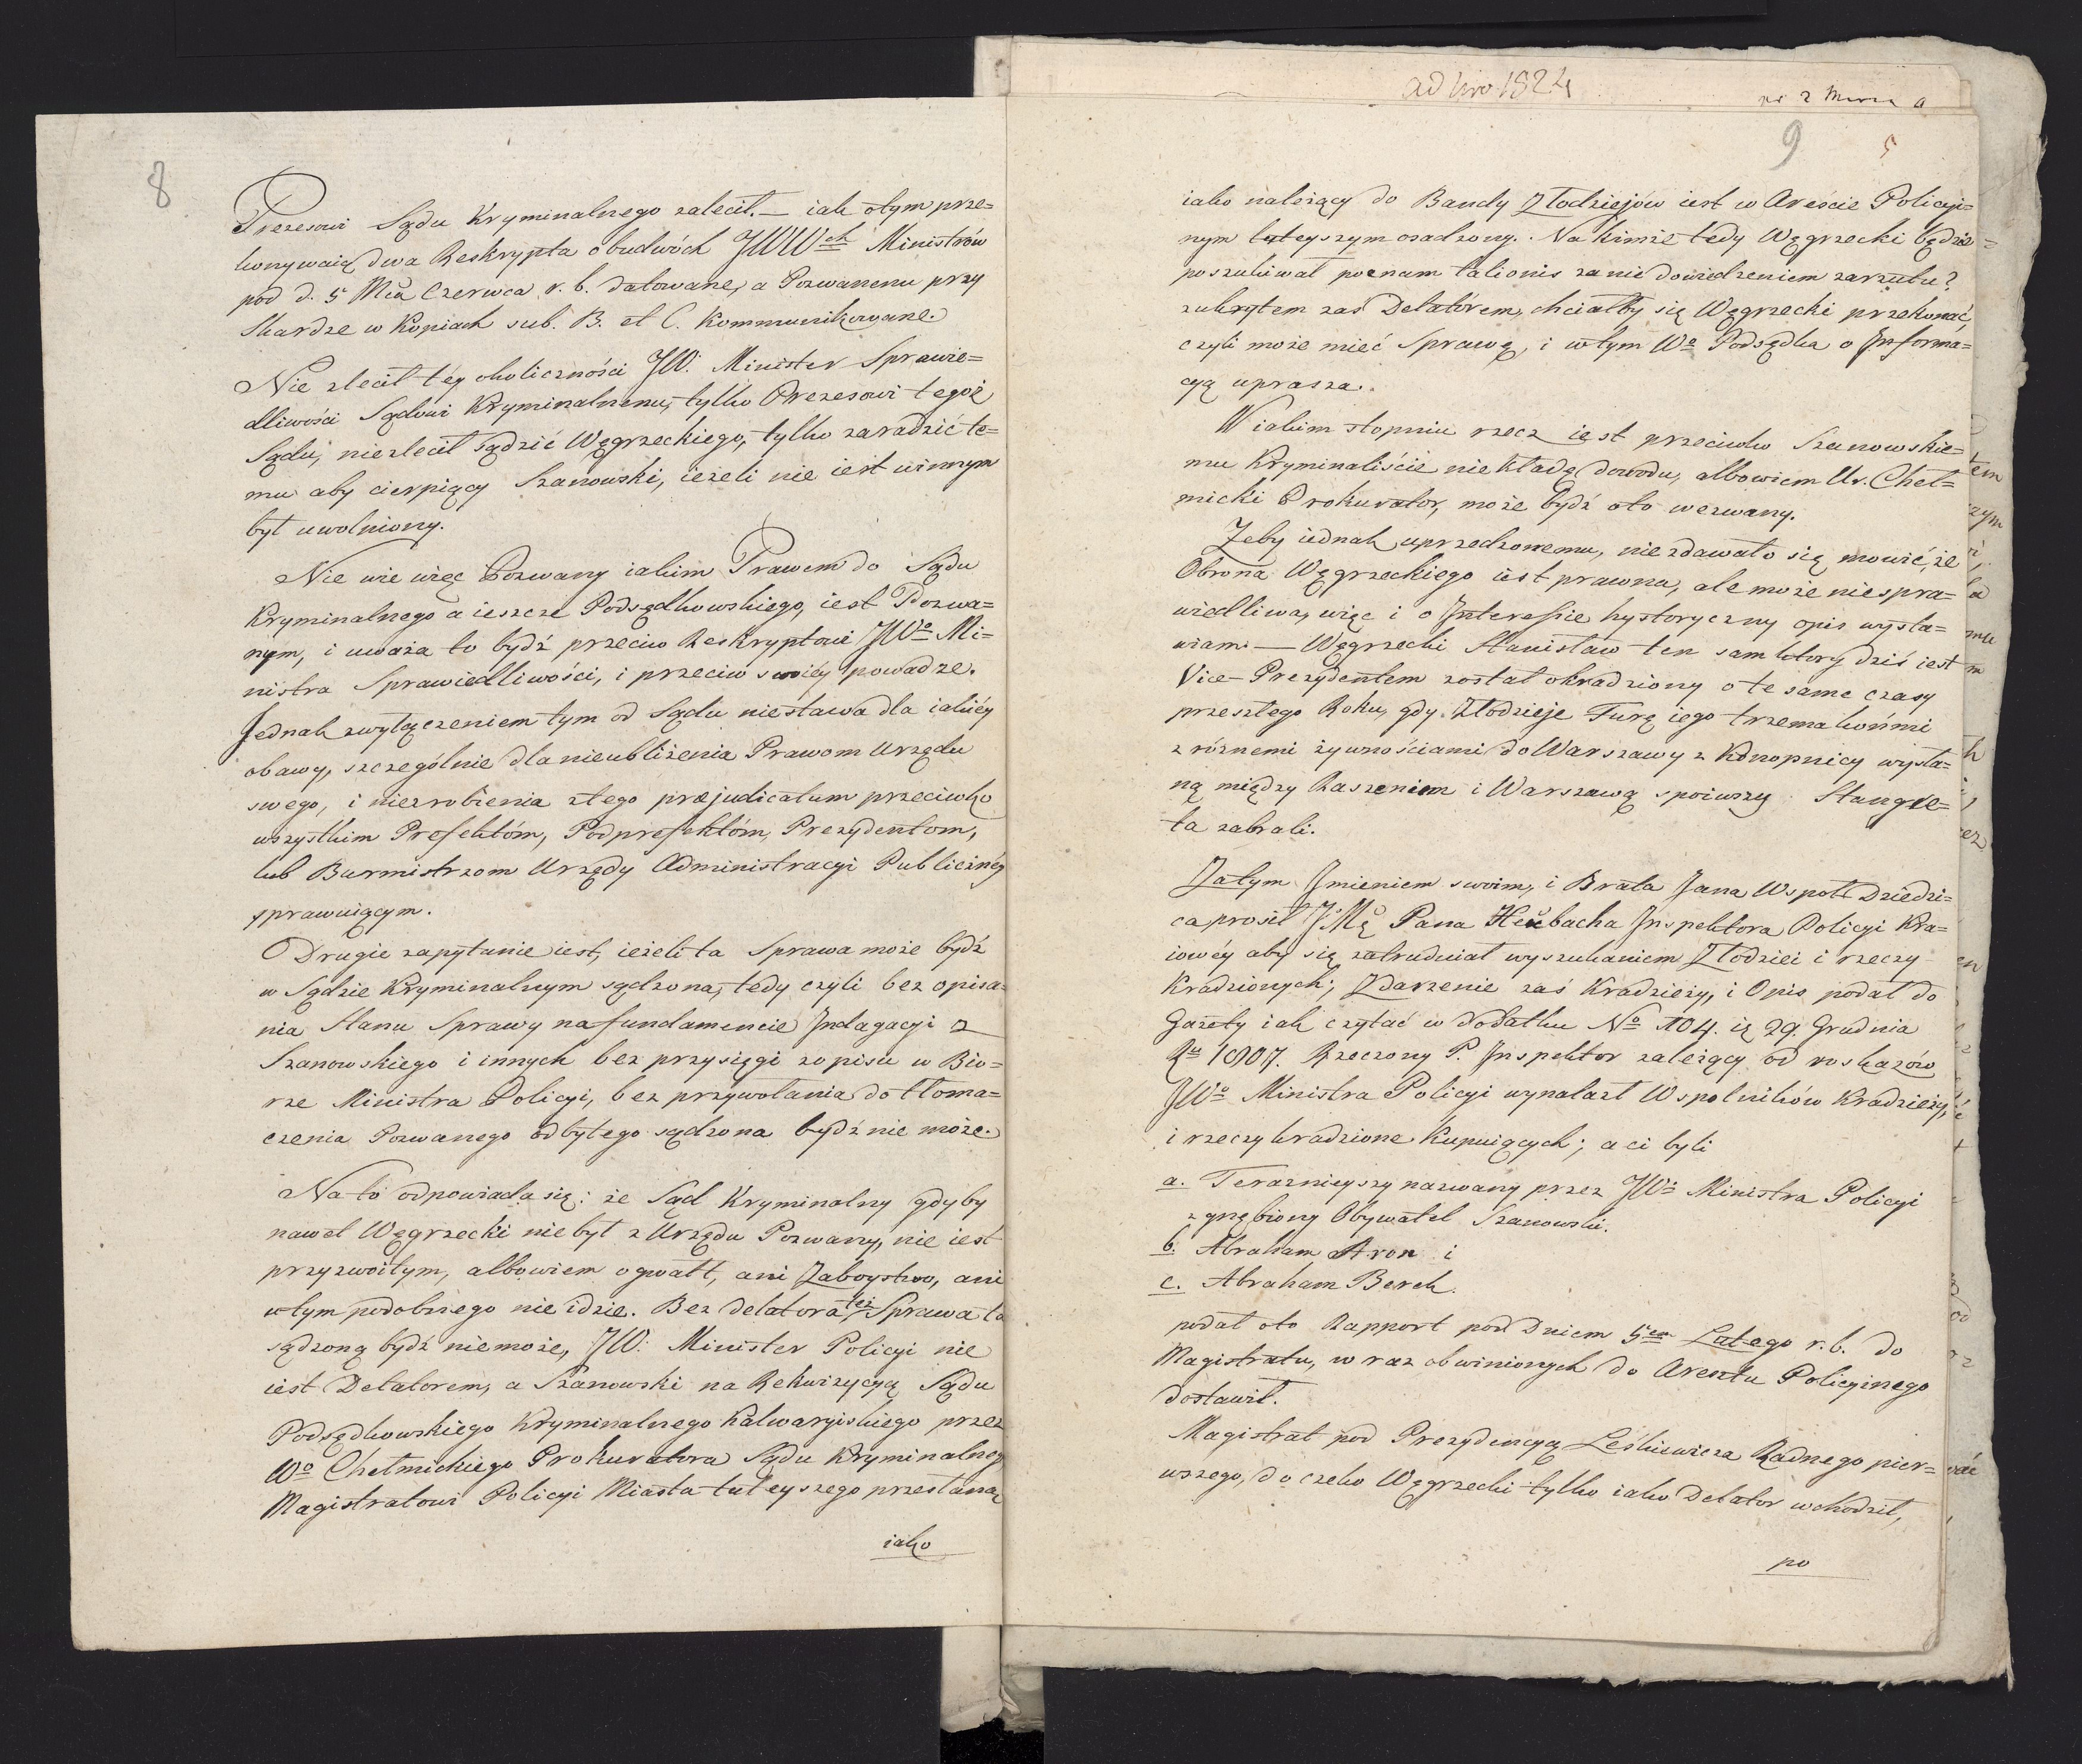 8
Prezesowi Sądu Kryminalnego zalecił. — iak otym prze=
konywaią dwa Reskrypta obudwóch JWW<u>ch</u> Ministrów
pod d. 5 Mca Czerwca r. b. datowane, a Pozwanemu przy
Skardze w Kopiach sub. B. et C. kommunikowane.
Nie zlecił téy okoliczności JW. Minister Sprawie=
dliwości Sądowi Kryminalnemu, tylko Prezesowi tegoż
Sądu, niezlecił sądzić Węgrzeckiego, tylko zaradzić te=
mu aby cierpiący Szanowski, ieżeli nie iest winnym
był uwolniony.
Nie wie więc Pozwany iakim Prawem do Sądu
Kryminalnego a ieszcze Podsędkowskiego, iest Pozwa=
nym, i uważa to bydź przeciw Reskryptowi JWo Mi=
nistra Sprawiedliwości, i przeciw swoiey powadze.
Jednak zwyłączeniem tym od Sądu niestawa dla iakiéy
obawy, szczególnie dla nieubliżenia Prawom Urzędu
swego, i niezrobienia złego præjudicatum przeciwko
wszystkim Prefektóm, Podprefektóm, Prezydentom,
lub Burmistrzom Urzędy Administracyi Publicznéy
sprawuiącym.
Drugie zapytanie iest, ieżeli ta Sprawa może bydź
w Sądzie Kryminalnym sądzona, tedy czyli bez opisa=
nia Stanu Sprawy na fundamencie Indagacyi z
Szanowskiego i innych bez przysięgi zopisu w Bio=
rze Ministra Policyi, bez przywołania do tłoma=
czenia Pozwanego odbytego sądzona bydź nie może.
Na to odpowiada się: że Sąd Kryminalny gdyby
nawet Węgrzecki nie był z Urzędu Pozwany, nie iest
przyzwoitym, albowiem o gwałt, ani Zaboystwo, ani
wtym podobnego nie idzie. Bez delatora też Sprawa ta
sądzoną bydź niemoże, JW. Minister Policyi nie
iest Delatorem, a Szanowski na Rekwizycyą Sądu
Podsędkowskiego Kryminalnego Kalwaryiskiego przez
Wo Chełmickiego Prokuratora Sądu Kryminalneg
Magistratowi Policyi Miasta tuteyszego przesłaną
iako
ad Nro 1824
9
5
iako należący do Bandy Złodziejów iest w Areście Policyi=
nym tuteyszym osadzony. Na kimże tedy Węgrzecki będzie=
poszukiwał poenam talionis zanie dowiedzeniem zarzutu?
zukrytem zaś Delatórem, chciałby się Węgrzecki przekonać,
czyli może mieć Sprawę, i wtym Wo Podsędka o Informa=
cyą uprasza.
Wiakim stopniu rzecz iest przeciwko Szanowskie=
mu Kryminaliście niekładę dowodu, albowiem Ur. Cheł=
micki Prokurator, może bydź oto wezwany.
Żeby iednak uprzedzonemu, nie zdawało się mowić, że
Obrona Węgrzeckiego iest prawna, ale może niespra=
wiedliwa, więc i o Interessie hystoryczny opis wysta=
wiam — Węgrzecki Stanisław ten sam który dziś iest
Vice-Prezydentem został okradziony o te same czasy
przeszłego Roku, gdy Złodzieje Furę iego trzema końmi
z róznemi żywnościami do Warszawy z Konopnicy wysła=
ną między Raszeniem i Warszawą spoiwszy Stangre=
ta zabrali.
Zatym Imieniem swoim, i Brata Jana Wspoł Dziedzi=
ca prosił JMę Pana Heübacha Inspektora Policyi Kra=
iowéy aby się zatrudniał wyszukaniem Złodziei i rzeczy
Kradzionych; Zdarzenie zaś Kradzieży, i Opis podał do
Gazety iak czytać w dodatku No 104. ią 29. Grudnia
Ru 1807. Rzeczony P. Inspektor zależący od roskazów
JWo Ministra Policyi wynalazł Wspolników Kradzieży,
i rzeczy kradzione Kupuiących; a ci byli
a. Teraznieyszy nazwany przez JWo Ministra Policyi
zgnębiony Obywatel Szanowski.
b. Abraham Aron i
c. Abraham Berek.
podał oto Rapport pod Dniem 5em Lutego r. b. do
Magistratu, w raz obwinionych do Aresztu Policyinego
dostawił.
Magistrat pod Prezydencyą Leśkiewicza Radnego pier=
wszego, do czeho Węgrzecki tylko iako Delator wchodził,
po